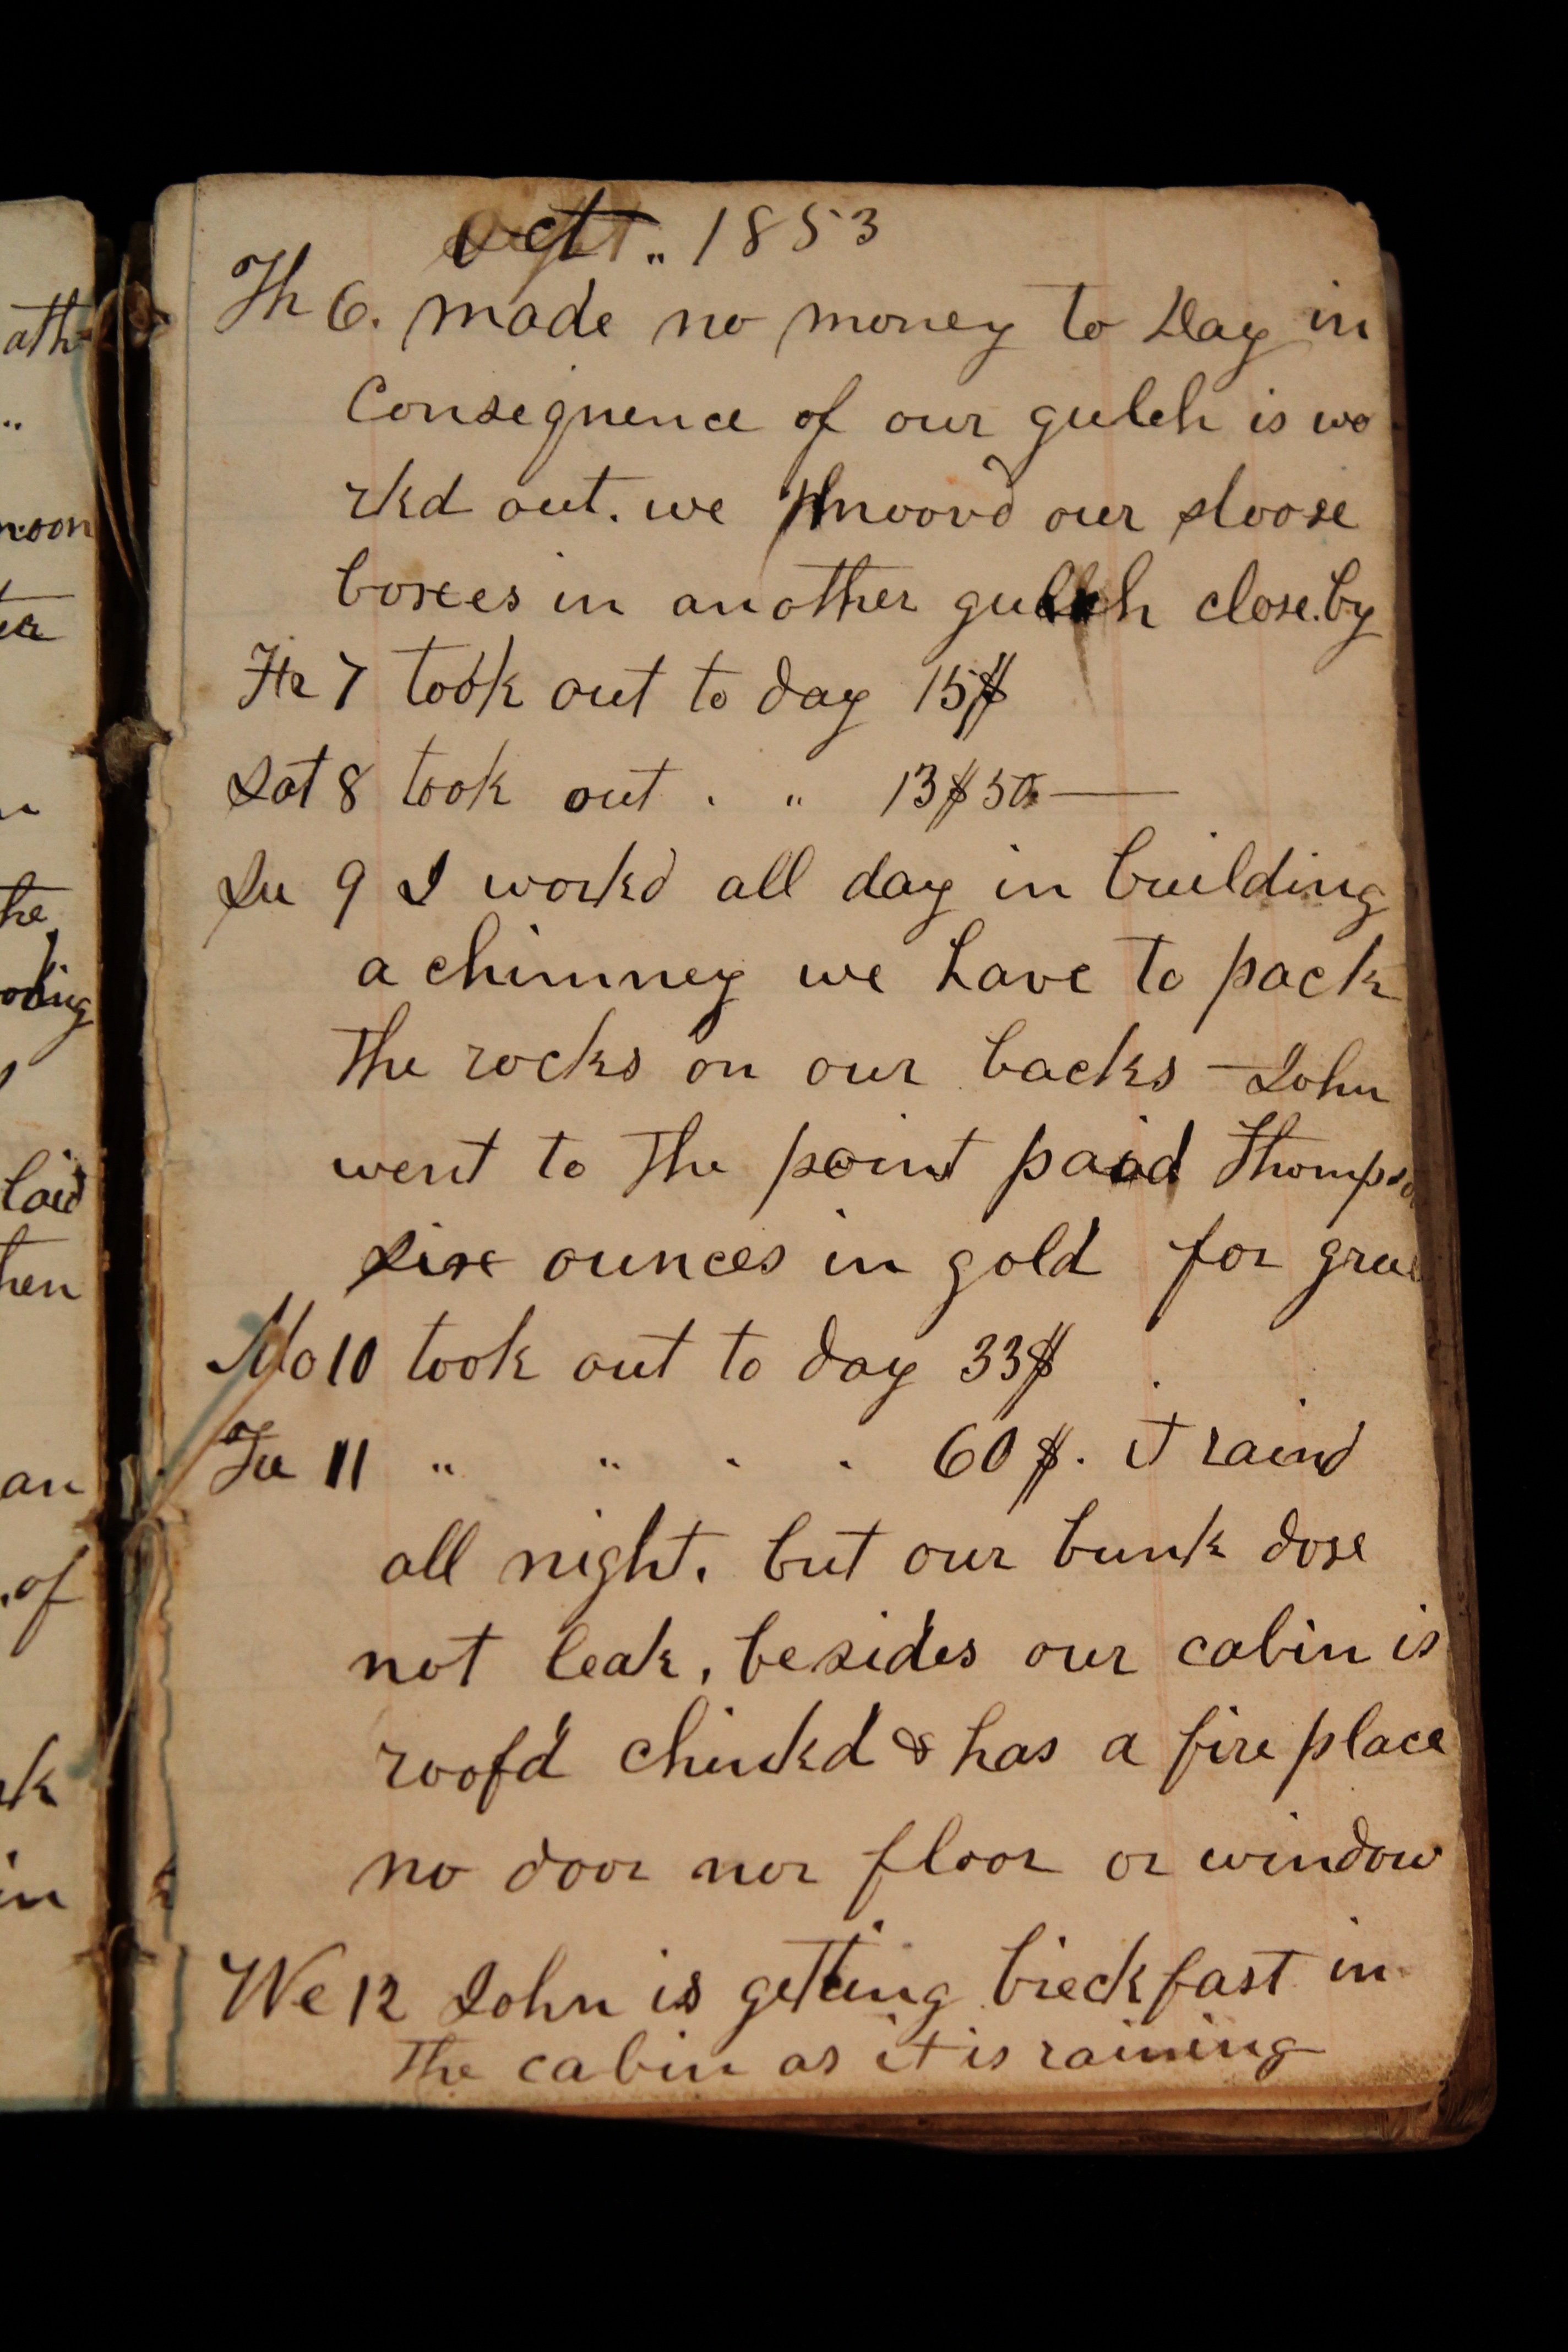 Oct .. 1853
Th 6. made no money to Day in
Consequence of our gulch is wo
rkd out. we moovd our sloose
boxees in another gulch close.by
Fr 7 took out to day 15$
Sat 8 took out . " 13$50 —
Su 9 I workd all day in building
a chimney we have to pack
the rocks on our backs — John
went to the point paid Thompso
six ounces in gold for
Mo 10 took out to day 33$
Tu 11 " " . . 60$. it raind
all night. but our bunk dose
not leak, besides our cabin is
roofd chinkd & has a fire place
no door nor floor or window
We 12 John is getting breckfast in
the cabin as it is raining
ath
..
noon
he
laid
hen
an
.of
in